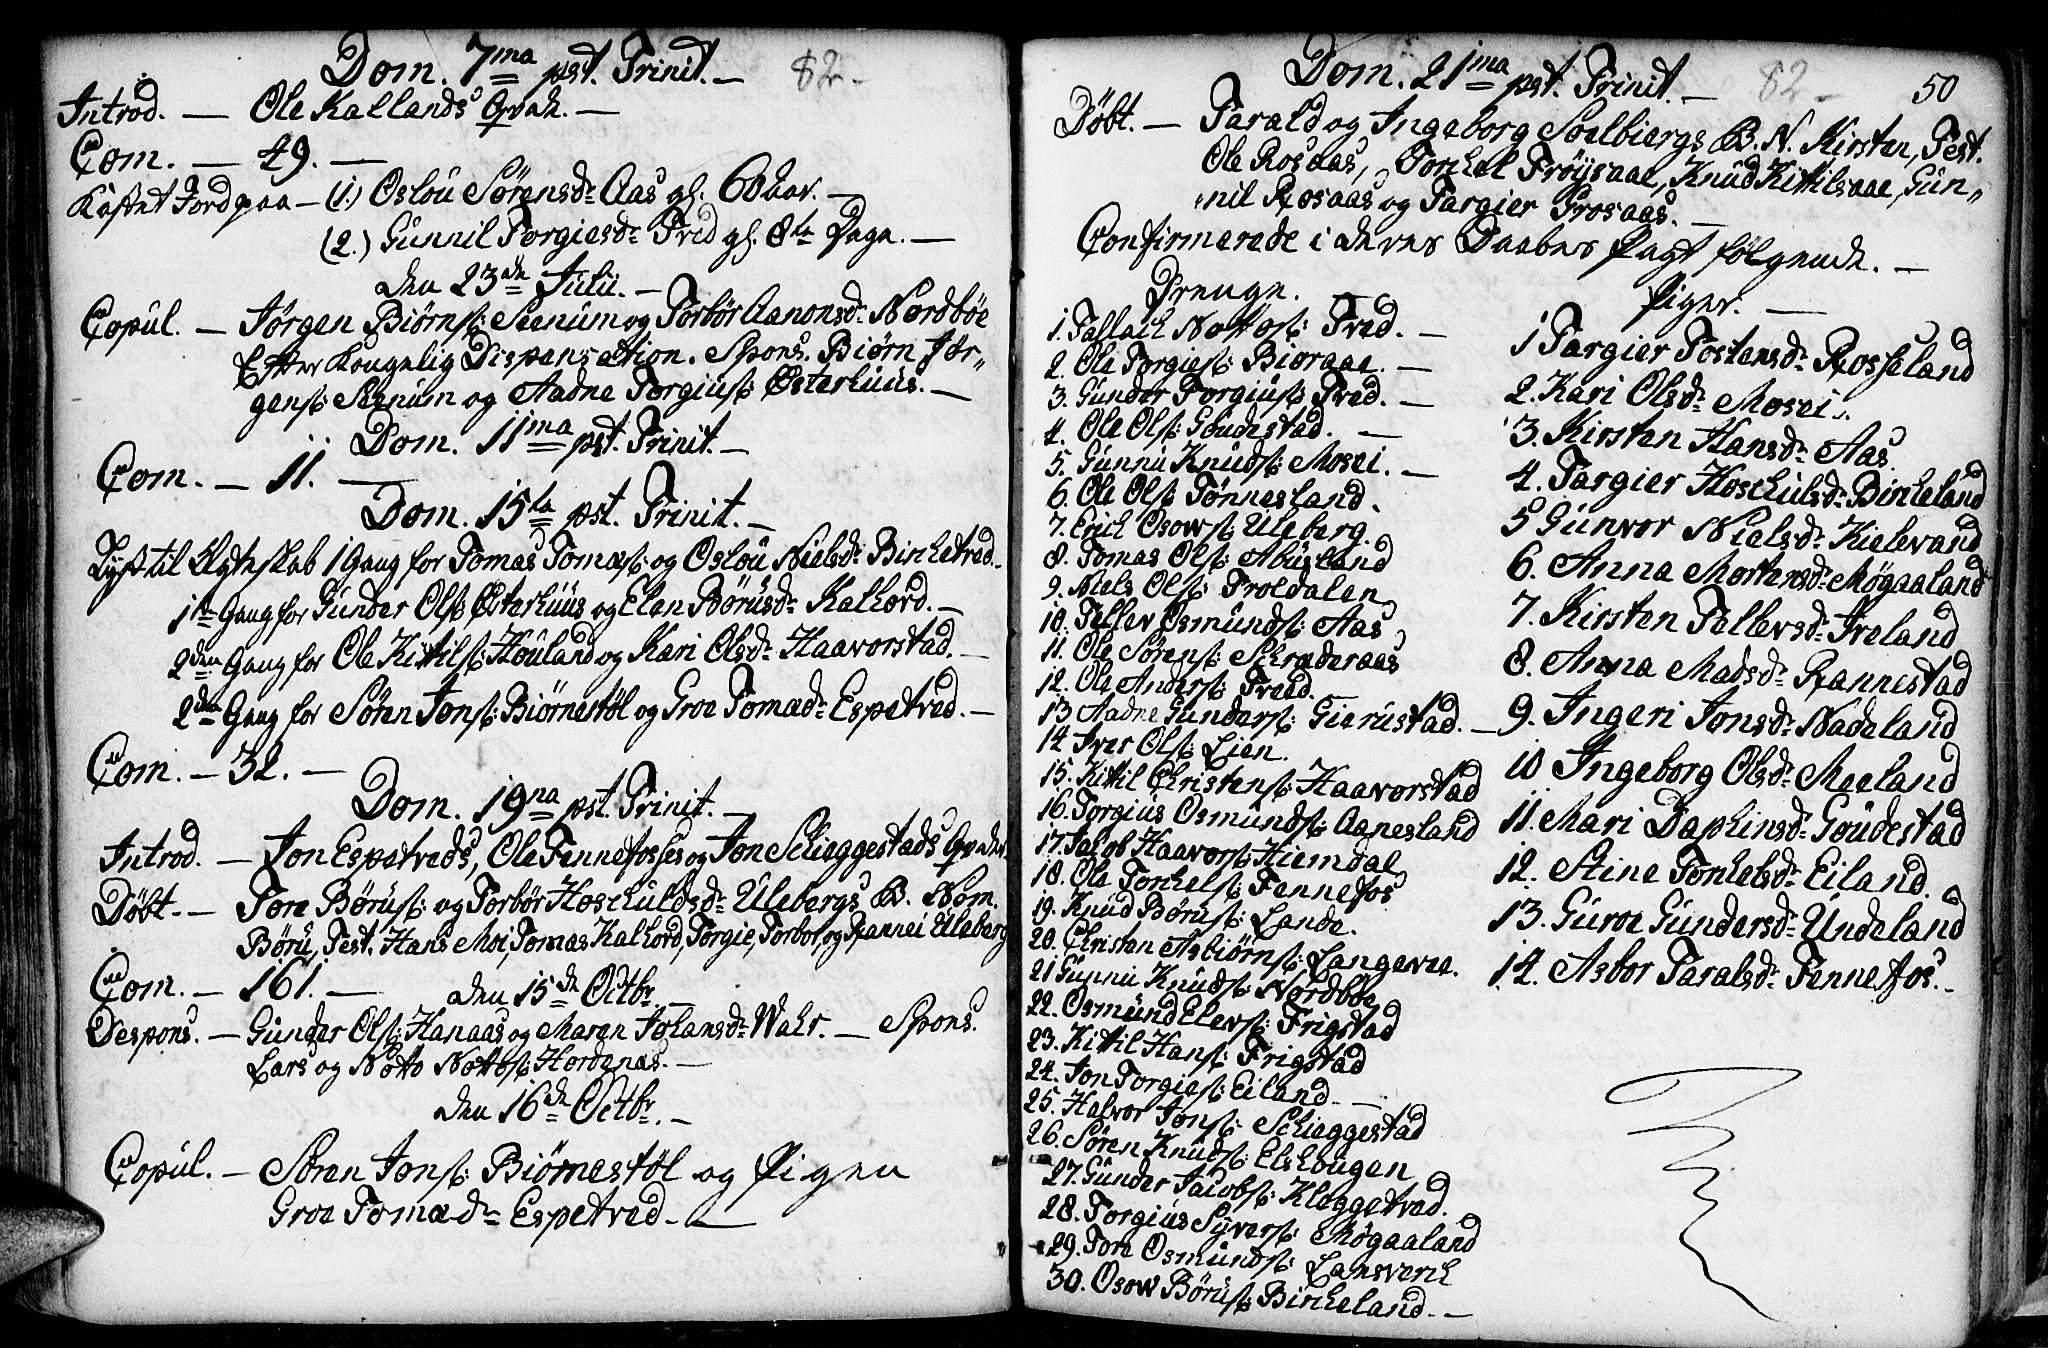 Dom. 7ma pst. Trinit. — 82 —
Introd. — Ole Kallands Qvah. —
Com. — 49. —
Kastet Jord paa — (1.) Oslou Sørensdr Aas gl. 60 aar. —
(2.) Gunnil Torgiesdr Tred gl. 8te Dage. —
den 23de Julii. —
Copul. — Jørgen Biørns: Seenum og Torbør Aanonsdr Nordbøe
Efter Kongelig Dispensation. Spons. Biørn Jør-
gens: Seenum og Aadne Torgius: Østerhuus. —
Dom. 11ma pst. Trinit. —
Com. — 11. —
Dom. 15ta pst. Trinit. —
Lyst til Ægteskab 1 Gang for Tomas Tomæs: og Oslou Nielsdr Birchetred.
1te Gang for Gunder Ols: Østerhuus og Elen Børusdr Kalhord. —
2den Gang for Ole Kittils: Houland og Kari Olsdr Haavorstad. —
2den Gang for Søren Jons: Biørnestøl og Groe Tomædr Espetred. —
Com. — 32. —
Dom. 19na pst. Trinit. —
Introd. — Jon Espetreds, Ole Fennefosses og Jon Schieggestads Qvah.
Døbt. — Tore Børus: og Torbør Hoschuldsdr Ulebergs B. Nom.
Børu, Test. Hans Moi, Tomas Kalhord, Torgie, Torbor, og Rannei Uleberg
Com. — 161. —
den 15de Octbr. —
Despons. — Gunder Ols: Hanaas og Maren Johansdr Wahr. — Spons.
Lars og Notto Nottos: Hordenæs. —
den 16de Octbr. —
Copul. — Søren Jons: Biørnestøl og Pigen
Groe Tomædr Espetred. —
Dom. 21ma pst. Trinit. — 82 — 50
Døbt. — Tarald og Ingeborg Soelbiergs B. N. Kirsten, Test.
Ole Rosaas, Torchel Frøysaae, Knud Kittilsaae, Gun-
nil Rosaas og Targier Frosaas. —
Confirmerede i deres Daabes Pagt følgende. —
Drenge.
1. Tallach Nottos: Tred. —
2. Ole Torgies: Bioraae. —
3. Gunder Torgius: Tred. —
4. Ole Ols: Goudestad. —
5. Gunnu Knuds: Mosei. —
6. Ole Ols: Tønnesland.
7. Erich Osows: Uleberg.
8. Tomas Ols: Abusland
9. Niels Ols: Troldalen
10. Tellev Osmunds: Aas
11. Ole Sørens: Schraderaas
12. Ole Anders: Treed.
13 Aadne Gunders: Gierustad. —
14 Iver Ols: Lien.
15. Kittil Christens: Haavorstad
16. Torgius Osmunds: Aagnesland
17. Jacob Haavors: Hiemdal
18. Ole Torchels: Fennefos
19. Knud Børus: Lande.
20. Christen Asbiørns: Langevee.
21 Gunnu Knuds: Nordbøe
22. Osmund Elevs: Frigstad
23. Kittil Hans: Frigstad
24. Jon Torgies: Eiland. —
25. Halvor Jons: Schieggestad
26. Søren Knuds: Elshougen
27. Gunder Jacobs: Kleggetred.
28. Torgius Syvers: Møgaaland
29. Tore Osmunds: Lansverch
30. Osow Børus: Bircheland. —
Piger. —
1 Targier Tostensdr Rosseland
2. Kari Olsdr Mosei.
3. Kirsten Hansdr Aas.
4. Targier Hoschulsdr Bircheland
5 Gunvor Nielsdr Kielevand
6. Anna Mortensdr Møgaaland
7. Kirsten Tellevsdr Ireland
8. Anna Madsdr Rannestad
9. Ingeri Jonsdr Nadeland
10 Ingeborg Olsdr Meeland
11. Mari Daphinsdr Goudestad
12. Stine Torchelsdr Eiland.
13. Guroe Gundersdr Undeland
14. Asbor Taralsdr Fennefos. —